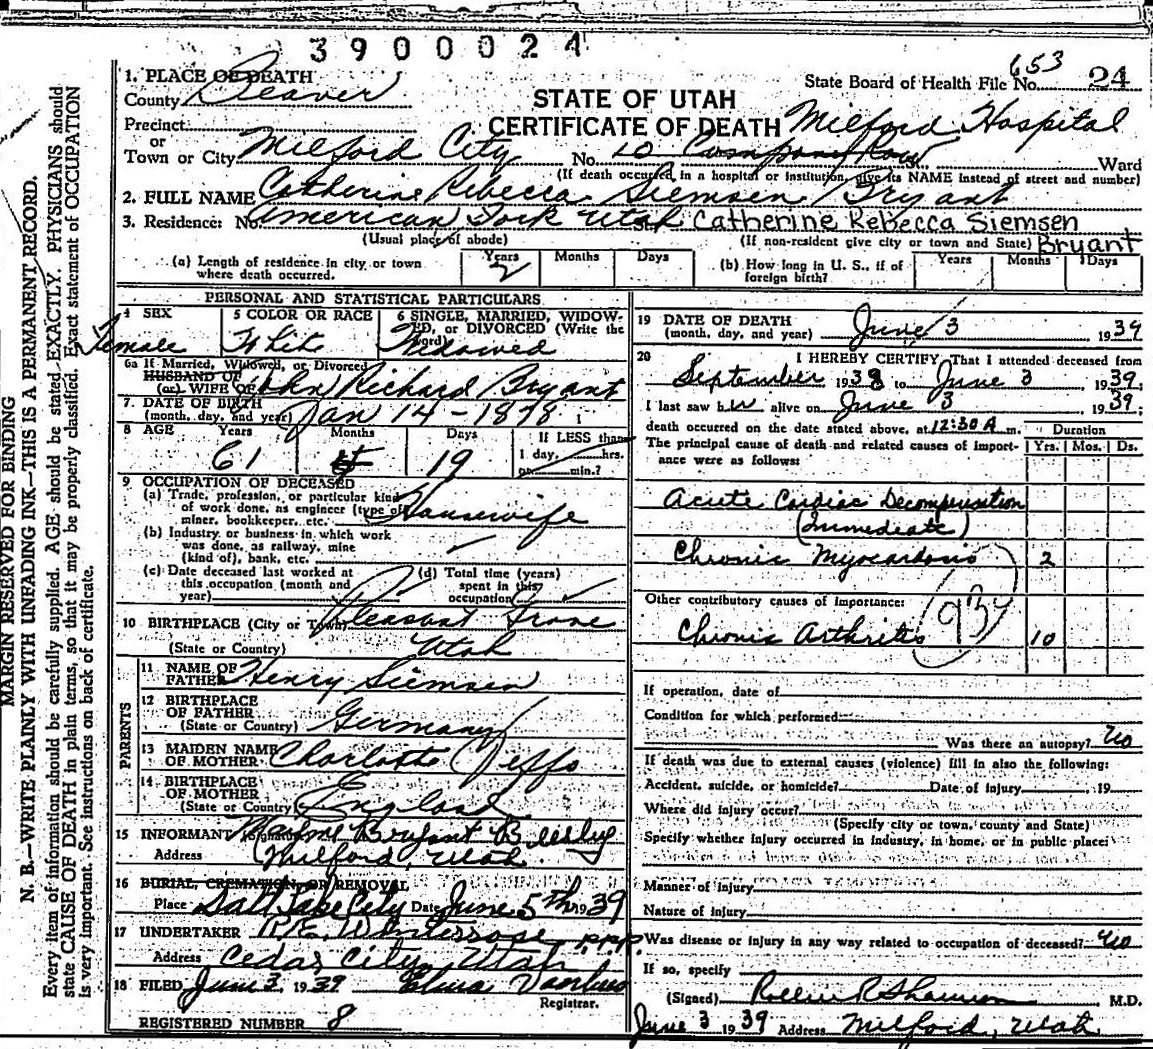 3900024
State Board of Health File No. 653 24
1. PLACE OF DEATH
County Beaver
STATE OF UTAH
CERTIFICATE OF DEATH
Precinct
or
Town or City Milford City No. 10 Company Row Milford Hospital Ward
(If death occurred in a hospital or institution, give its NAME instead of street and number)
2. FULL NAME Catherine Rebecca Siemsen Bryant
3. Residence: No. American Fork Utah St. Catherine Rebecca Siemsen Bryant
(Usual place of abode) (If non-resident give city or town and State)
(a) Length of residence in city or town where death occurred. Years 2 Months Days
(b) How long in U. S., if of foreign birth? Years Months Days
PERSONAL AND STATISTICAL PARTICULARS
4 SEX Female
5 COLOR OR RACE White
6 SINGLE, MARRIED, WIDOWED, or DIVORCED (Write the word) Widowed
6a If Married, Widowed, or Divorced
HUSBAND OF
(or) WIFE OF John Richard Bryant
7. DATE OF BIRTH
(month, day, and year) Jan 14 - 1878
8 AGE Years 61 Months Days 19 If LESS than 1 day, hrs. or min.?
9 OCCUPATION OF DECEASED
(a) Trade, profession, or particular kind of work done, as engineer (type of miner, bookkeeper, etc. Housewife
(b) Industry or business in which work was done, as railway, mine (kind of), bank, etc.
(c) Date deceased last worked at this occupation (month and year)
(d) Total time (years) spent in this occupation
10 BIRTHPLACE (City or Town) Pleasant Grove
(State or Country) Utah
PARENTS
11 NAME OF FATHER Henry Siemsen
12 BIRTHPLACE OF FATHER
(State or Country) Germany
13 MAIDEN NAME OF MOTHER Charlotte Jeffs
14 BIRTHPLACE OF MOTHER
(State or Country) England
15 INFORMANT Bryant Beesley
Address Milford, Utah
16 BURIAL, CREMATION, OR REMOVAL
Place Salt Lake City Date June 5th 1939
17 UNDERTAKER R.E. Winterrose p.p.p.
Address Cedar City, Utah
18 FILED June 3 1939 Elma
Registrar.
REGISTERED NUMBER 8
19 DATE OF DEATH
(month, day, and year) June 3 1939
20 I HEREBY CERTIFY That I attended deceased from
September 1938 to June 3 1939;
I last saw her alive on June 3 1939;
death occurred on the date stated above, at 12:30 A m. Duration
The principal cause of death and related causes of importance were as follows: Yrs. Mos. Ds.
Acute Cardiac Decompensation
(Immediate)
Chronic Myocarditis 2
Other contributory causes of importance:
Chronic Arthritis 10
If operation, date of
Condition for which performed
Was there an autopsy? no
If death was due to external causes (violence) fill in also the following:
Accident, suicide, or homicide? Date of injury 19
Where did injury occur?
(Specify city or town, county and State)
Specify whether injury occurred in industry, in home, or in public place:
Manner of injury
Nature of injury
Was disease or injury in any way related to occupation of deceased? no
If so, specify
(Signed) Rollin R. M.D.
June 3 1939 Address Milford, Utah
MARGIN RESERVED FOR BINDING
N. B.—WRITE PLAINLY WITH UNFADING INK—THIS IS A PERMANENT RECORD.
Every item of information should be carefully supplied. AGE should be stated EXACTLY. PHYSICIANS should
state CAUSE OF DEATH in plain terms, so that it may be properly classified. Exact statement of OCCUPATION
is very important. See instructions on back of certificate.